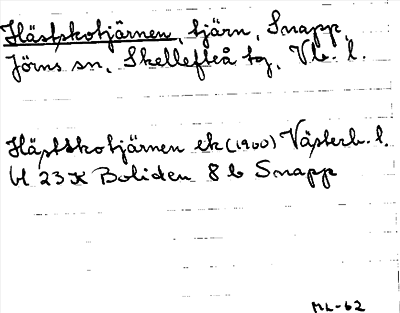 Hästskotjärnen, tjärn, Snapp,
Jörns sn, Skellefteå tg, Vb. l.
Hästskotjärnen ek (1900) Västerb. l.
bl 23 K Boliden 8 b Snapp
ML-62